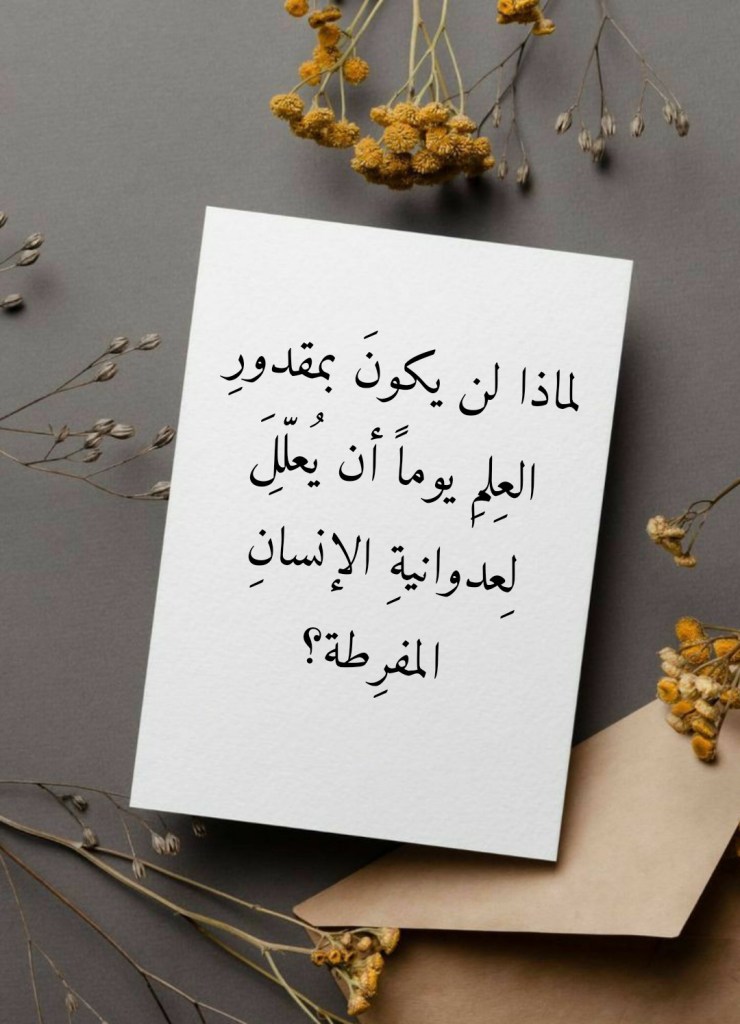 لماذا لن يكونَ بمقدورِ
العِلمِ يوماً أن يُعلّلَِ
لِعدوانيةِ الإنسانِ
المفرِطة؟